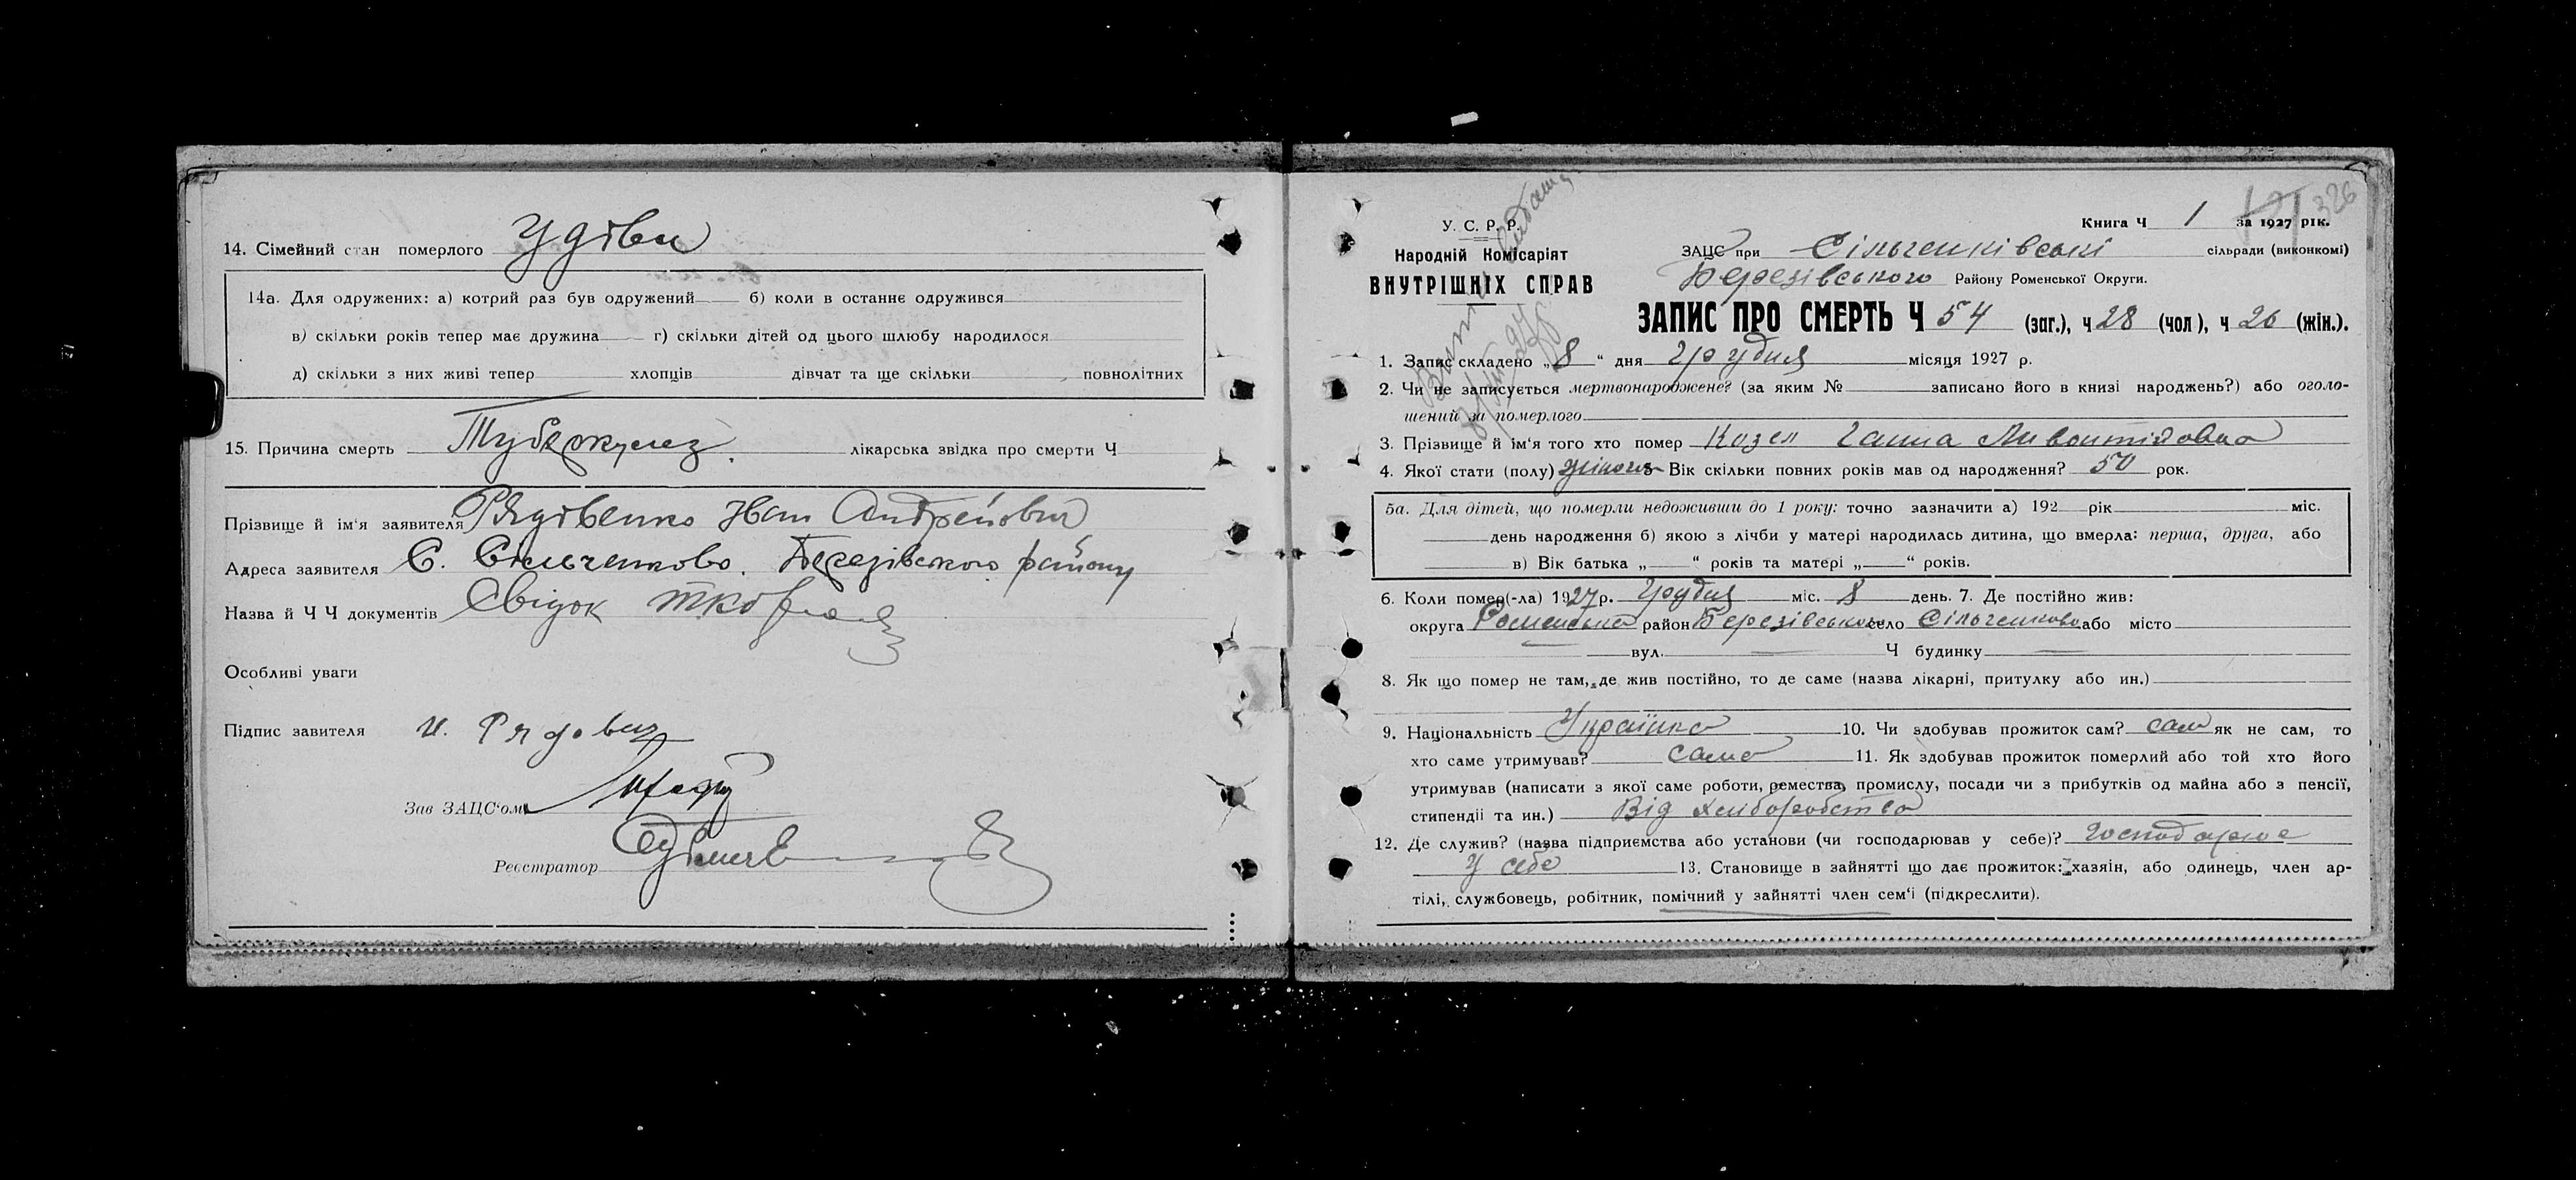 14. Сімейний стан померлого Удівец
14а. Для одружених: а) котрий раз був одружений б) коли в останнє одружився
в) скільки років тепер має дружина г) скільки дітей од цього шлюбу народилося
д) скільки з них живі тепер хлопців дівчат та ще скільки повнолітних
15. Причина смерть Туберкулез. лікарська звідка про смерти Ч
Прізвище й ім'я заявителя Рядівенко Иван Андрейович
Адреса заявителя С. Сільченково. Березівського району
Назва й Ч Ч документів Свідок
Особливі уваги
Підпис завителя И.
Зав ЗАЦС'ом
Реєстратор
У. С. Р. Р.
Народній Комісаріят
ВНУТРІШНІХ СПРАВ
Книга Ч 1 за 1927 рік.
326
ЗАЦС при Сільченківські сільради (виконкомі)
Березівського Району Роменської Округи.
ЗАПИС ПРО СМЕРТЬ Ч 54 (заг.), ч 28 (чол), ч 26 (жін.).
1. Запис складено „8" дня Грудня місяця 1927 р.
2. Чи не записується мертвонароджене? (за яким № записано його в книзі народжень?) або оголо-
шений за померлого
3. Прізвище й ім'я того хто помер Козел Ганна
4. Якої стати (полу) жіноча Вік скільки повних років мав од народження? 50 рок.
5а. Для дітей, що померли недоживши до 1 року: точно зазначити а) 192 рік міс.
день народження б) якою з лічби у матері народилась дитина, що вмерла: перша, друга, або
в) Вік батька „ " років та матері „ " років.
6. Коли помер(-ла) 1927 р. Грудня міс. 8 день. 7. Де постійно жив:
округа Роменська район Березівськ село Сільченково або місто
вул. Ч будинку
8. Як що помер не там, де жив постійно, то де саме (назва лікарні, притулку або ин.)
9. Національність Українка 10. Чи здобував прожиток сам? сам як не сам, то
хто саме утримував? сама 11. Як здобував прожиток померлий або той хто його
утримував (написати з якої саме роботи, ремества, промислу, посади чи з прибутків од майна або з пенсії,
стипендії та ин.) Від хліборобства
12. Де служив? (назва підприємства або установи (чи господарював у себе)? господарює
у себе 13. Становище в зайнятті що дає прожиток: хазяін, або одинець, член ар-
тілі, службовець, робітник, помічний у зайнятті член сем'і (підкреслити).